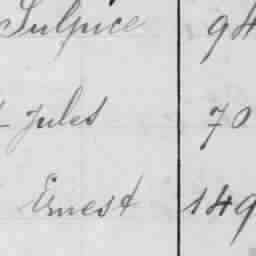 Sulpice 94
- Jules 70
Ernest 149